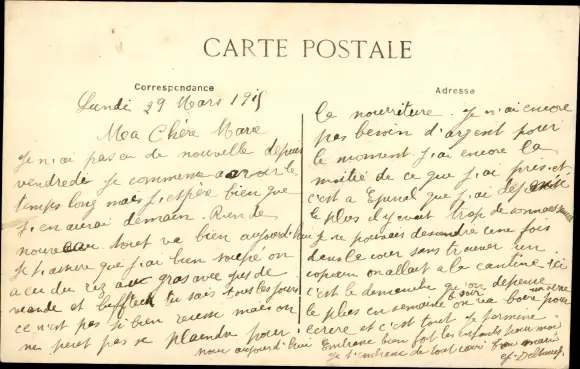 CARTE POSTALE
Correspondance
Adresse
Lundi 29 Mars 1915
Mea Chère Marie
Je n'ai pas eu de nouvelle depuis
vendredi je commence a avoir le
temps long mais j'espère bien que
j'en aurai demain. Rien de
nouveau tout va bien aujourd'hui
Je t'assure que j'ai bien soupé on
a eu du riz au gras avec pas de
viande et tu sais tous les jours
ce n'est pas si bien mais on
ne peut pas se plaindre pour
la nourriture. Je n'ai encore
pas besoin d'argent pour
le moment j'ai encore la
moitié de ce que j'ai pris et
c'est a Epinal que j'ai dépensé
le plus il y avait trop de
je ne pouvais descendre une fois
dans la cour sans trouver un
copain on allait a la cantine ici
c'est le dimanche qu'on dépense
le plus en semaine on va boire pour
le soir un verre
ecrire et c'est tout Je termine
pour aujourd'hui Embrasse bien fort les enfants pour moi
Je t'embrasse de tout cœur Ton mari